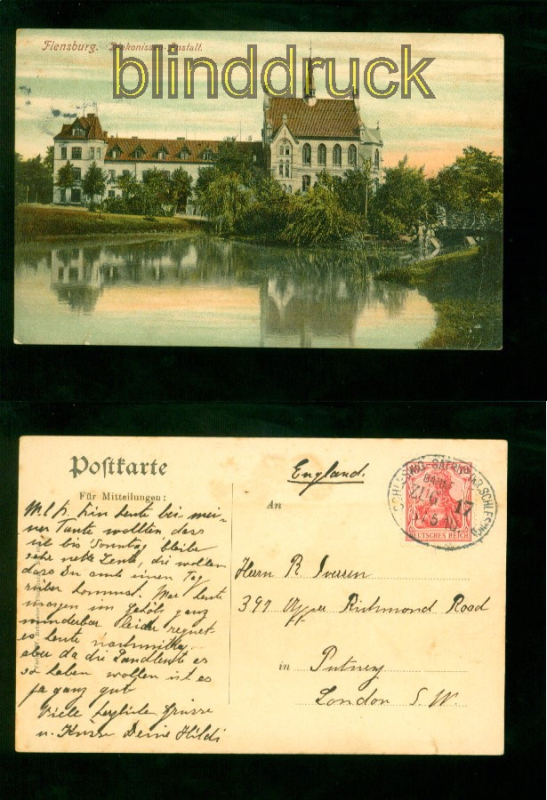 Flensburg. Diakonissen-Anstalt.
blinddruck
Postkarte
England.
Für Mitteilungen:
An
hin heute bei mei-
ner Tante wollten dass
ich bis Sonntag bleibe
sehr nette Leute, die wollen
dass Du auch einen Tag
rüber kommst. War heute
morgen im Gehölz ganz
wunderbar leider regnet
es heute nachmittag
aber da die Landleute es
so haben wollen ist es
ja ganz gut
Viele herzliche Grüsse
u. Küsse Deine Hildi
Herrn R.
391 Upper Richmond Road
in Putney
London S. W.
ZUG 17
DEUTSCHES REICH